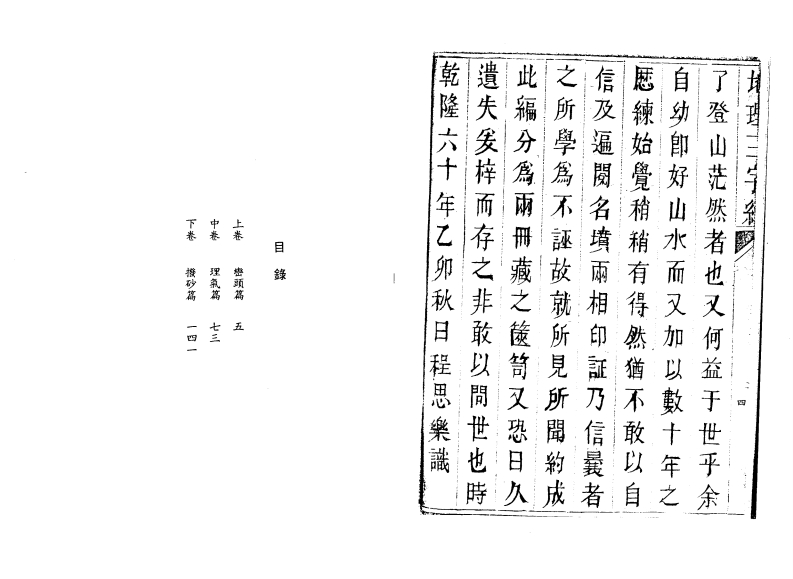 地理三字經
了登山茫然者也又何益于世乎余
自幼卽好山水而又加以數十年之
歷練始覺稍稍有得然猶不敢以自
信及遍閱名墳兩相印証乃信曩者
之所學爲不誣故就所見所聞約成
此編分爲兩冊藏之篋笥又恐日久
遺失爰梓而存之非敢以問世也時
乾隆六十年乙卯秋日程思樂識
四
目錄
上卷 巒頭篇 五
中卷 理氣篇 七三
下卷 撥砂篇 一四一